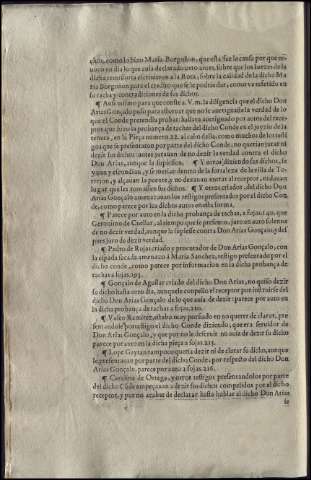 chos, como lo hizo Maria Borgoñon, que esta fue la causa por que
uoco en dia lo que auia declarado otro antes, sobre que los juezes de la
dicha remissoria escriuieron a la Rota, sobre la calidad de la dicha Ma
ria Borgoñon para el credito que se le podia dar, como se refutado en
su tacha y contradiciones de sus dichos.
¶ Assi mismo para que conste a V. m. la diligencia que el dicho Don
Arias Gonçalo puso para estoruar que no se aueriguasse la verdad de lo
que el Conde pretendia prouar, hallara aueriguado por autos del recep
tor que hizo la prouança de tachas del dicho Conde en el pleyto de la
tenuta, en la Pieça numero 22. al dicho folio, como muchos de los testi
gos que se presentaron por parte del dicho Conde, no querian jurar ni
dezir sus dichos antes jurauan de no dezir la verdad contra el dicho
Don Arias, aunque la supiessen. ¶ Y otros diziendo sus dichos, se
yuan y escondian, y se metian dentro de la fortaleza de la villa de To-
rrejon, y alçauan la puente, y no dexauan entrar al receptor, ni daua
lugar que les tomassen sus dichos. ¶ Y otros criados, del dicho Don
Arias Gonçalo amenazauan los testigos presentados por el dicho Con
de, como parece por los dichos autos en esta forma,
¶ Parece por auto en la dicha prouança de tachas, a fojas 192. que
Geronimo de Cuellar, al tiempo que se presento, juro en auto solemne
de no dezir verdad, aunque la supiesse contra Don Arias Gonçalo, y des
pues juro de dezir verdad.
¶ Pedro de Rojas criado y procurador de Don Arias Gonçalo, con
la espada sacada amenazo a Maria Sanchez, testigo presentada por el
dicho Conde, como parece por informacion en la dicha prouança de
tachas a fojas. 193.
¶ Gonçalo de Aguilar criado del dicho Don Arias, no quiso dezir
su dicho hasta otro dia, aunque le compelio el receptor por informarse del
dicho Don Arias Gonçalo de lo que auia de dezir: parece por auto en
la dicha prouança de tachas a fojas, 210.
¶ Vasco Ramirez, estaua muy porfiado en no querer declarar, pre
sentandole por testigo el dicho Conde diziendo, que era seruidor de Don
Arias Gonçalo, y que por no le deseruir no auia de dezir su dicho
parece por auto en la dicha pieça a fojas 213.
¶ Lope Gaytan tampoco queria dezir ni declarar su dicho, aunque
le presentauan por parte del dicho Conde por respecto del dicho Don
Arias Gonçalo. parece por auto a fojas. 216.
¶ Catalina de Ortega, y otros testigos presentandolos por parte
del dicho Conde empeçauan a dezir sus dichos compelidos por el dicho
receptor, y por no acabar de declarar hasta hablar al dicho Don Arias
se